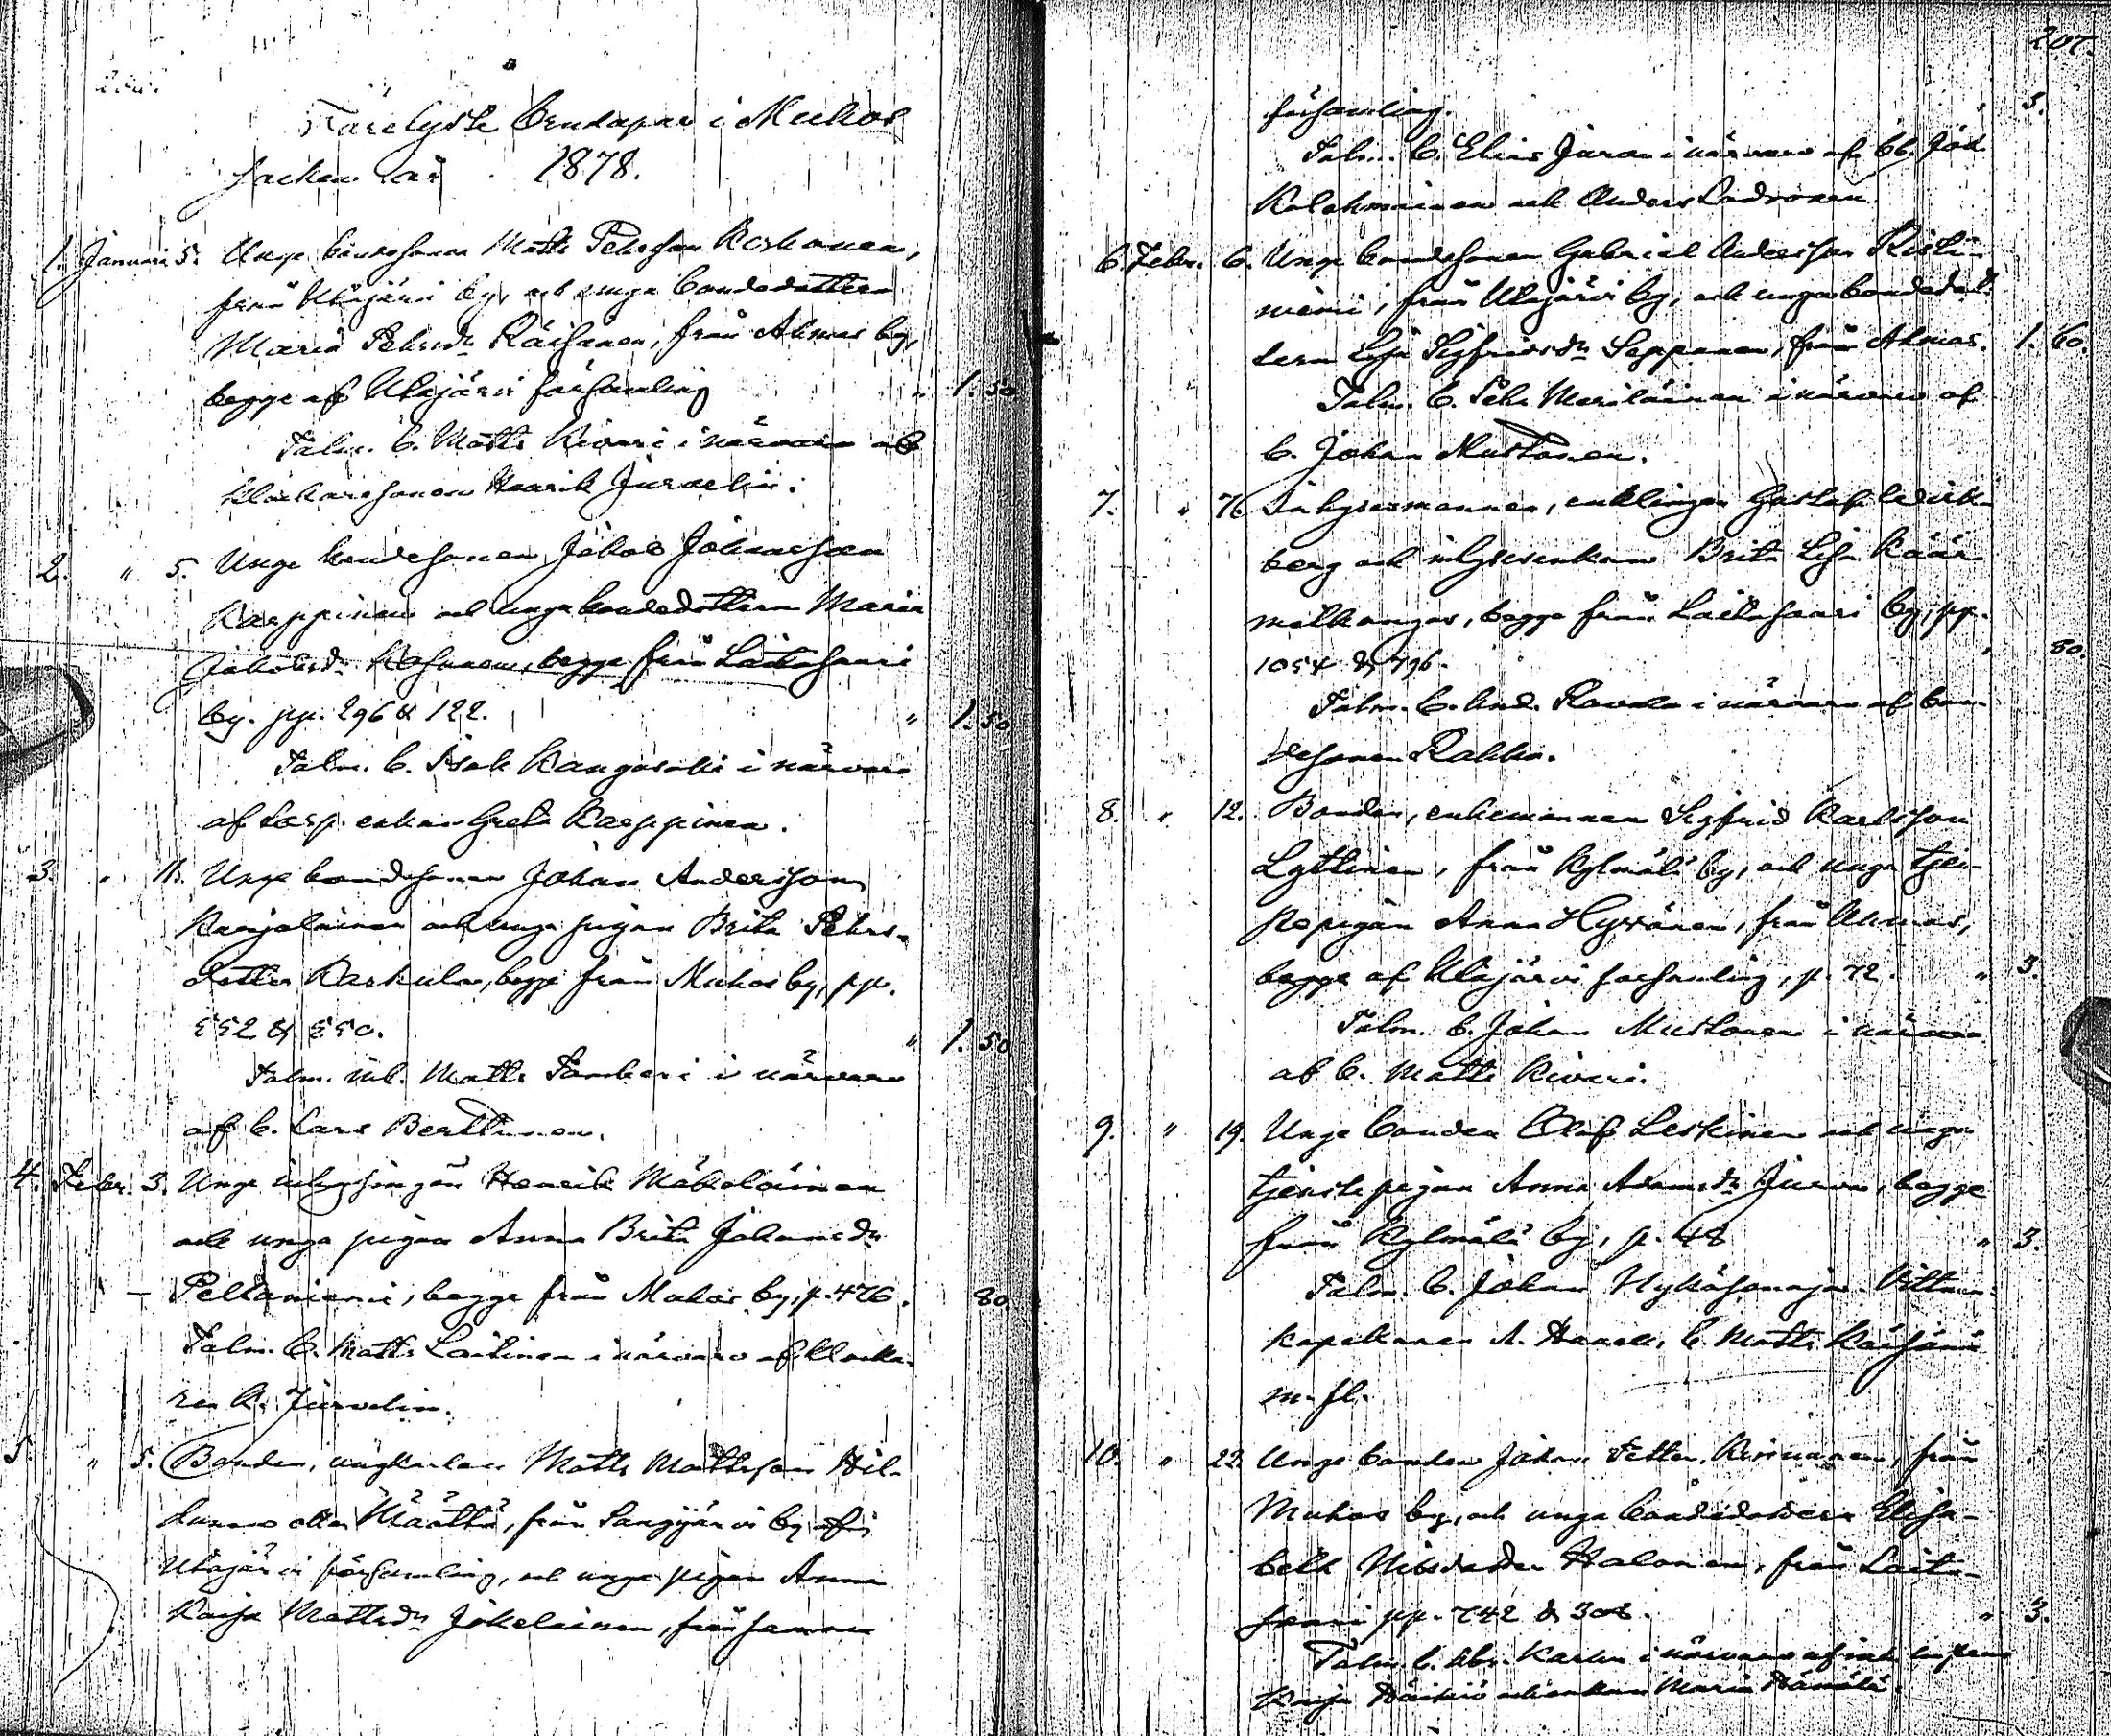 Farelyste brudapar i Muhos
socken år 1878.
1. Januari 5. Unge bondesonen Matts Pehrsson Koskonen,
från Utajärvi by, och unga bondedottern
Maria Pehrsdr Räisänen, från Ahmas by,
begge af Utajärvi församling " 1. 50
Talm. b. Matts Kivari i närvaro af
klockaresonen Henrik Jurvelin.
2. " 5. Unge bondesonen Jakob Johansson
Karppinen och unga bondedottern Maria
Jakobsdr Kosunen, begge från Laitasaari
by. pp. 296 & 122. " 1. 50
Talm. b. Isak Kangasoski i närvaro
af enkan Greta Karppinen.
3. " 11. Unge bondesonen Johan Andersson
Karjalainen och unga pigan Brita Pehrs-
dotter Karhula, begge från Muhos by, pp.
552 & 550. " 1. 50
Talm. inh. Matts Tamberi i närvaro
af b. Lars Berttunen.
4. Febr. 3. Unge inhysingen Henrik Mäkeläinen
och unga pigan Anna Brita Johansdr
Peltoniemi, begge från Muhos by, p. 476. 80
Talm. b. Matts Laitinen i närvaro af klocka-
ren K. Jurvelin.
5. " 5. Bonden, ungkarlen Matts Mattsson Hil-
tunen eller Määttä, från Sanginjärvi by af
Utajärvi församling, och unga pigan Anna
Kajsa Mattsdr Jokelainen, från samma
207.
församling. " 3.
Talm. b. Elias Jurva i närvaro af bb. Joh.
Kolehmainen och Anders
6. Febr. 6. Unge bondesonen Gabriel Andersson Risti-
niemi, från Utajärvi by, och unga bondedot-
tern Lisa Sigfridsdr Seppänen, från Ahmas. 1. 60.
Talm. b. Pehr Meriläinen i närvaro af
b. Johan Mustonen.
7. " 7. Inhysesmannen, enklingen Gustaf Wick-
berg och inhysesenkan Brita Lisa Käär-
mekangas, begge från Laitasaari by, pp.
1054 & 796. " 80.
Talm. b. And. Ravala i närvaro af bon-
desonen Rahko.
8. " 12. Bonden, enkemannen Sigfrid Karlsson
Lyttinen, från Kylmälä by, och unga tjen-
stepigan Anna Hyvönen, från Ahmas,
begge af Utajärvi församling, p. 72. " 3.
Talm. b. Johan Mustonen i närvaro
af b. Matts Kivari.
9. " 19. Unge bonden Olof Leskinen och unga
tjenstepigan Anna Adamsdr Jurva, begge
från Kylmälä by, p. 48 " 3.
Talm. b. Johan Hyköjonoja. Vittnen:
kapellanen A. b. Matts
m. fl.
10. " 22. Unge bonden Johan Petter Keränen, från
Muhos by, och unga bondedottern Elisa-
beth Nilsdotter Halonen, från Laita-
saari pp. 742 & 308. " 3.
Talm. b. Abr. Karhu i närvaro af
Kaisa och enkan Maria Hämälä.